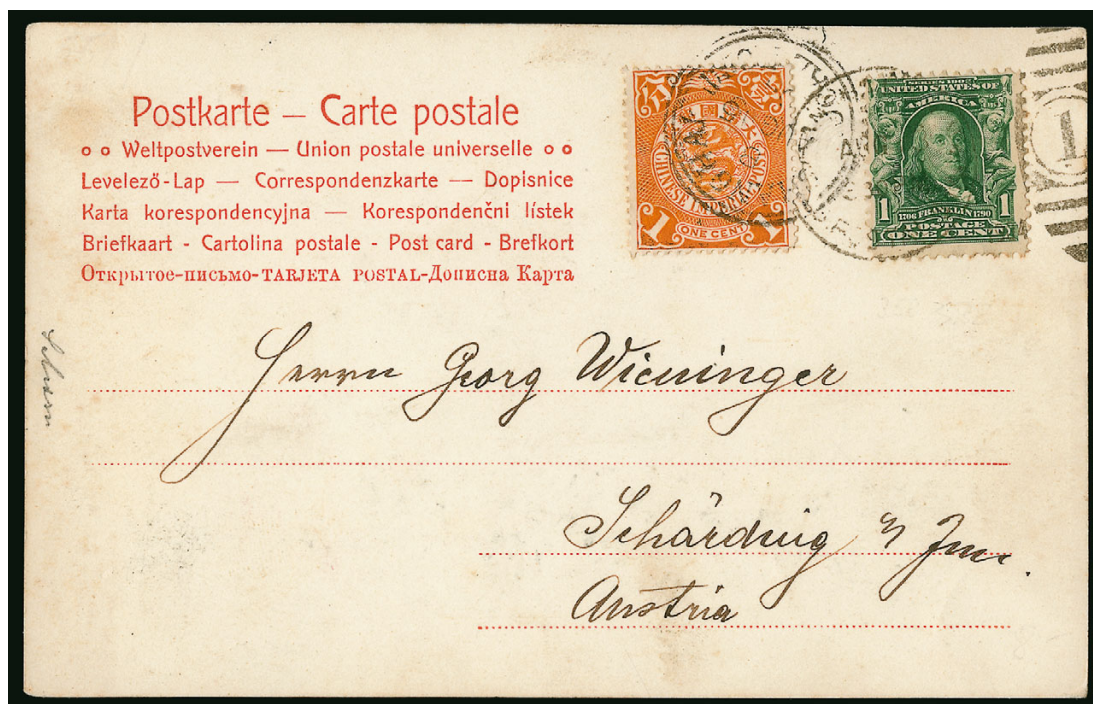 Postkarte — Carte postale
Weltpostverein — Union postale universelle
Levelező-Lap — Correspondenzkarte — Dopisnice
Karta korespondencyjna — Korespondenčni lístek
Briefkaart - Cartolina postale - Post card - Brefkort
Открытое-письмо-TARJETA POSTAL-Дописна Карта
CHINESE IMPERIAL POST
1 ONE CENT
SERIES 1902
UNITED STATES OF
AMERICA
1 1706 FRANKLIN 1790 1
POSTAGE
ONE CENT
1
Herrn Georg Wieninger
Schärding a/ Inn.
Austria